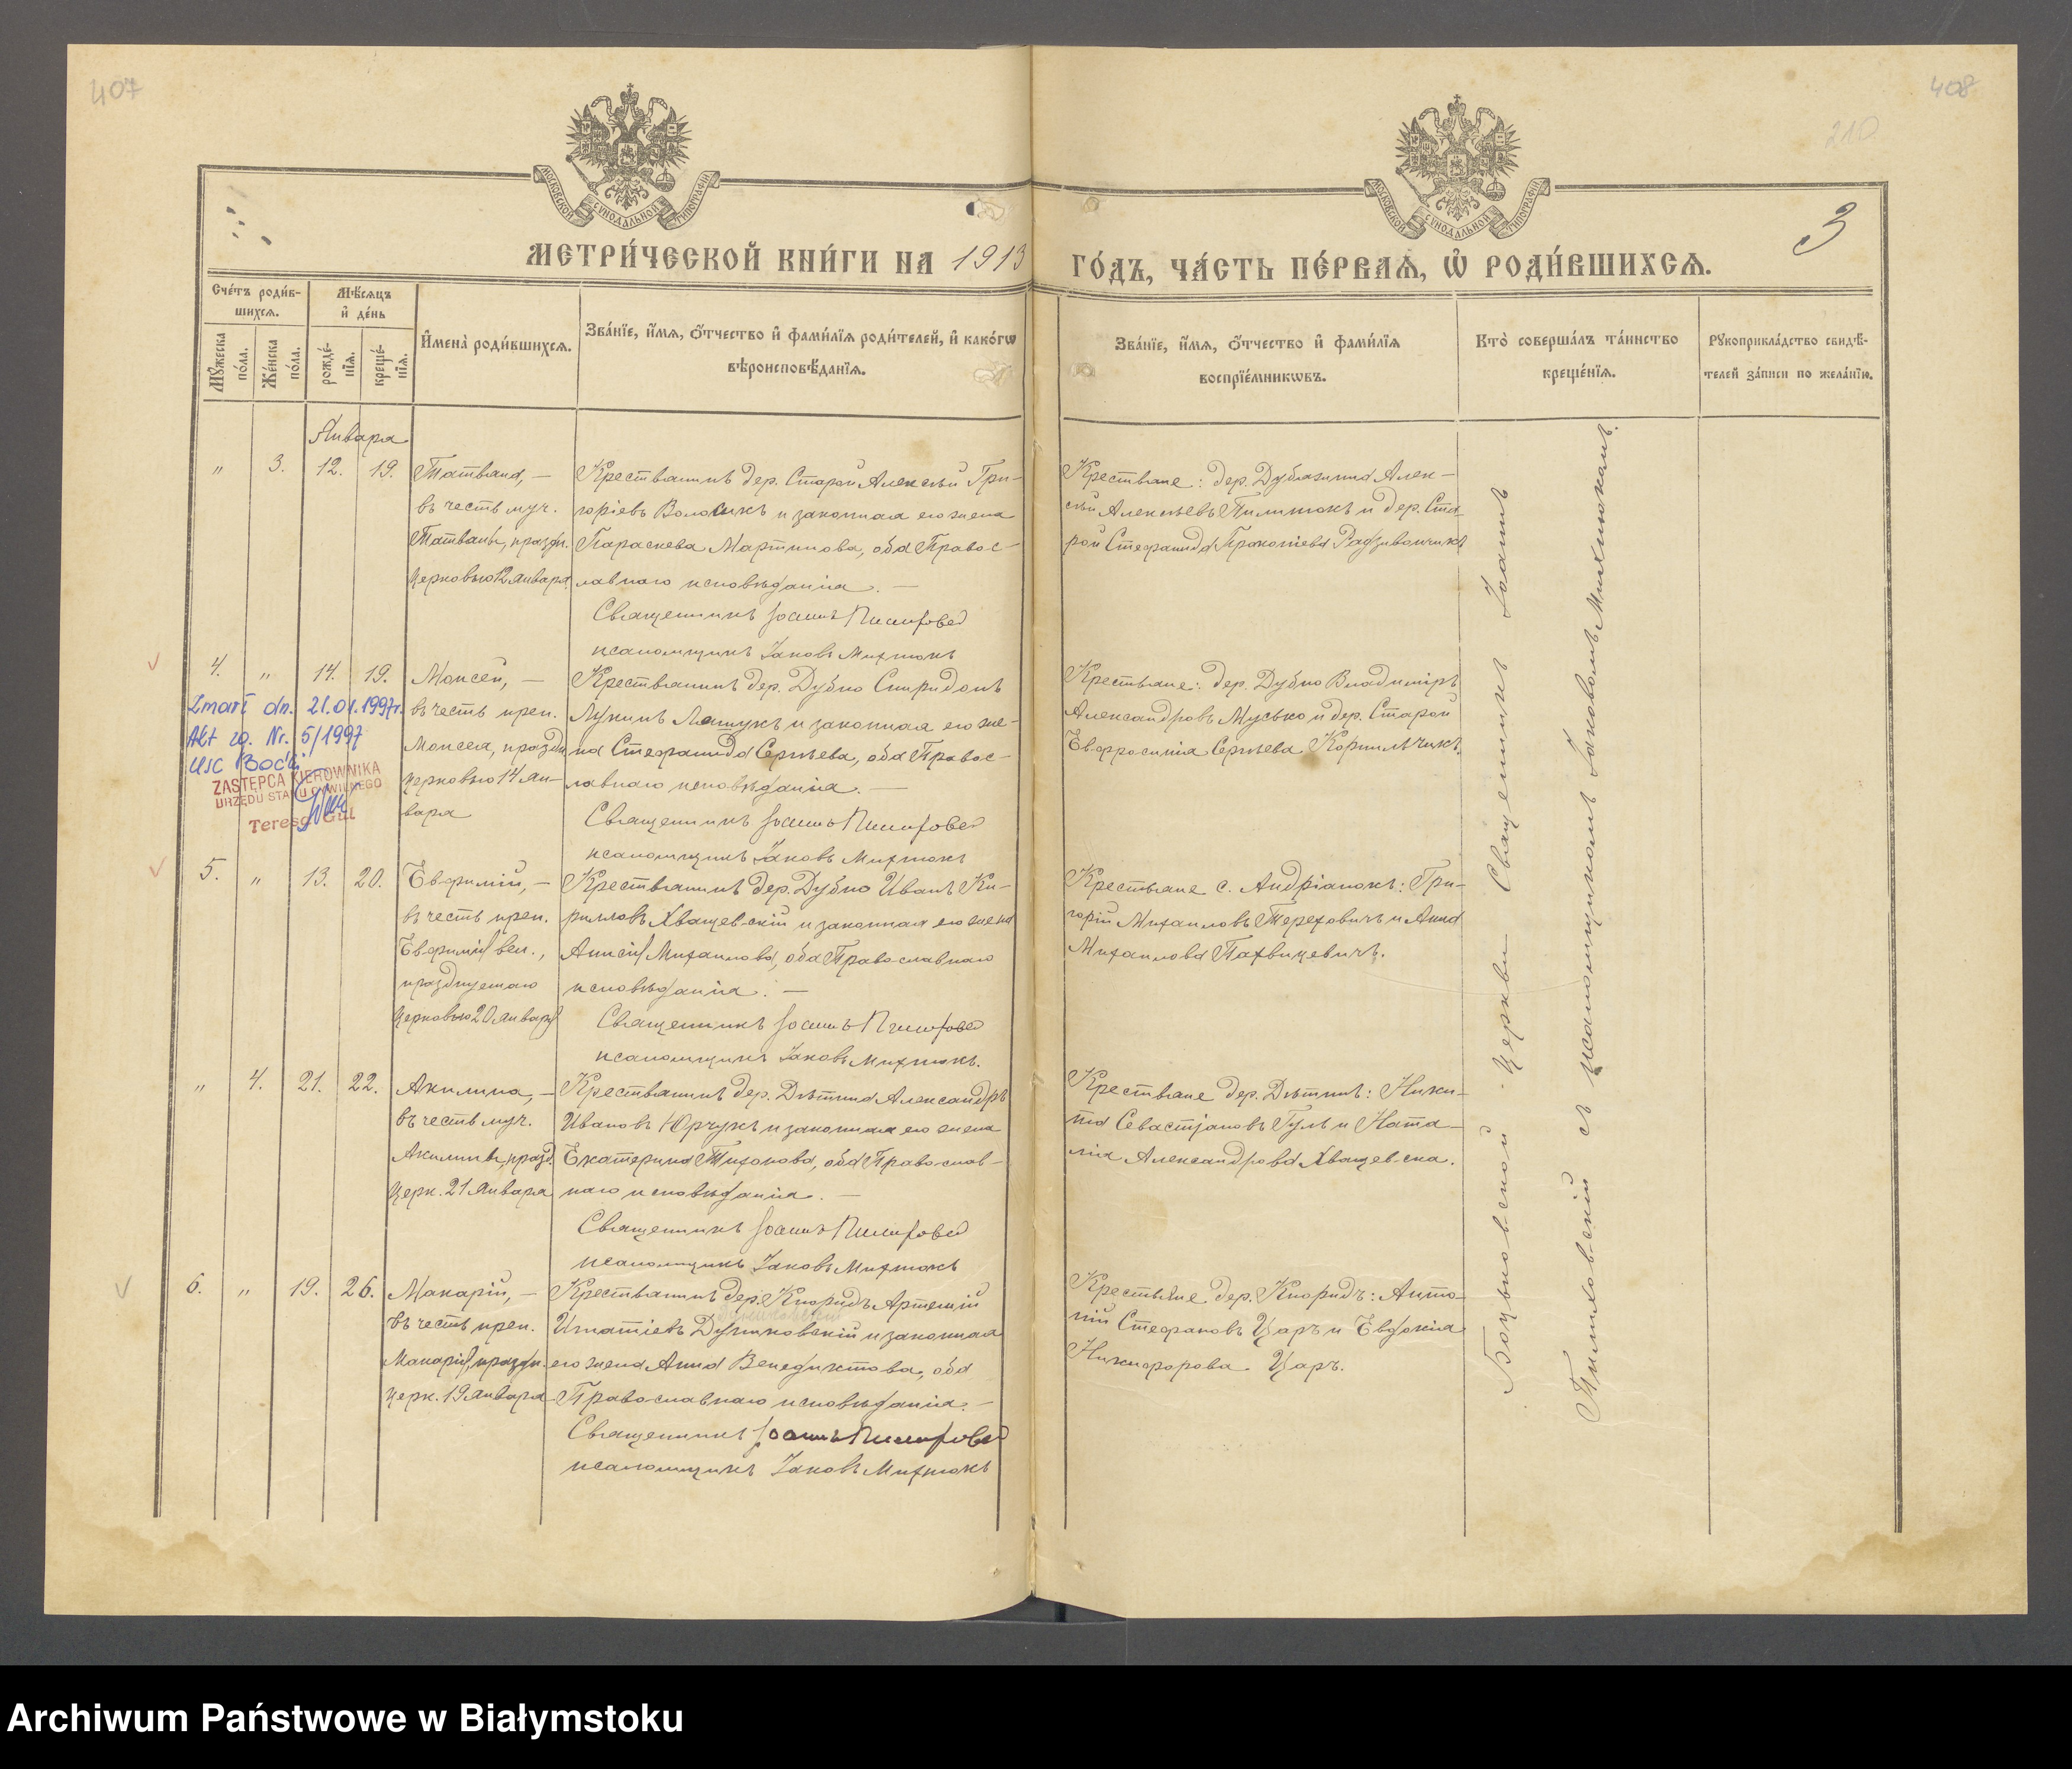 407
408
210
МОСКОВСКОЙ СѴНОДАЛЬНОЙ ТИПОГРАФІИ
МОСКОВСКОЙ СѴНОДАЛЬНОЙ ТИПОГРАФІИ
3
МЕТРИ́ЧЕСКОЙ КНИ́ГИ НА 1913
ГО́ДЪ, ЧА́СТЬ ПЕ́РВАѦ, Ѽ РОДИ́ВШИХСѦ.
Сче́тъ роди́в-
шихсѧ.
Мꙋ́жеска по́ла.
Же́нска по́ла.
Мѣ́сѧцъ
и҆ де́нь
рожде́-
нїѧ.
креще́-
нїѧ.
И҆мена̀ роди́вшихсѧ.
Зва́нїе, и҆́мѧ, ѻ҆́тчество и҆ фами́лїѧ роди́телей, и҆ како́гѡ
вѣроисповѣ́данїѧ.
Зва́нїе, и҆́мѧ, ѻ҆́тчество и҆ фами́лїѧ
воспрїе́мникѡвъ.
Кто̀ соверша́лъ та́инство
креще́нїѧ.
Рꙋкоприкла́дство свидѣ́-
телей за́писи по жела́нїю.
Января
" 3. 12. 19.
Татіана, —
въ честь муч.
Татіаны, праздн.
Церковью 12 Января
Крестьянинъ дер. Старой Алексѣй Гри-
горіевъ Волосикъ и законная его жена
Параскева Мартинова, оба Правос-
лавнаго исповѣданія. —
Священникъ Іоаннъ
псаломщикъ Іаковъ Михнюкъ
Крестьяне: дер. Дубляжина Алек-
сѣй Алексѣевъ Пилипюкъ и дер. Ста-
рой Стефанида Прокопіева Радзивончикъ
4. " 14. 19.
Zmarł dn. 21.01.1997r.
Akt zg. Nr. 5/1997
USC Boćki
ZASTĘPCA KIEROWNIKA
URZĘDU STANU CYWILNEGO
Teresa Gul
Моисей, —
въ честь преп.
Моисея, праздн.
Церковью 14 Ян-
варя
Крестьянинъ дер. Дубно Спиридонъ
Лукинъ Лашукъ и законная его же-
на Стефанида Сергѣева, оба Правос-
лавнаго исповѣданія. —
Священникъ Іоаннъ
псаломщикъ Іаковъ Михнюкъ
Крестьяне: дер. Дубно Владиміръ
Александровъ Мусько и дер. Старой
Евфросинія Сергѣева Корнильчикъ.
5. " 13. 20.
Евфимій, —
въ честь преп.
Евфимія вел.,
празднуемаго
Церковью 20 Января
Крестьянинъ дер. Дубно Иванъ Ки-
рилловъ Хващевскій и законная его жена
Анисія Михаилова, оба Православнаго
исповѣданія. —
Священникъ Іоаннъ
псаломщикъ Іаковъ Михнюкъ.
Крестьяне с. Андріанокъ: Гри-
горій Михаиловъ Тереховичъ и Анна
Михаилова Пахвицевичъ.
" 4. 21. 22.
Акилина, —
въ честь муч.
Акилины, празд.
Церк. 21 Января
Крестьянинъ дер. Дѣтина Александръ
Ивановъ Юрчукъ и законная его жена
Екатерина Тихонова, оба Православ-
наго исповѣданія. —
Священникъ Іоаннъ
псаломщикъ Іаковъ Михнюкъ
Крестьяне дер. Дѣтинъ: Ники-
та Севастіановъ Гуль и Ната-
лія Александрова Хващевска.
6. " 19. 26.
Макарій, —
въ честь преп.
Макарія, праздн.
Церк. 19 Января
Крестьянинъ дер. Кноридъ Артемій
Игнатіевъ Дулиновскій и законная
его жена Анна Венедиктова, оба
Православнаго исповѣданія. —
Священникъ Іоаннъ
псаломщикъ Іаковъ Михнюкъ
Крестьяне дер. Кноридъ: Анто-
ній Стефановъ Царъ и Евдокія
Никифорова Царъ.
Боцьковской Церкви Священникъ Іоаннъ
съ псаломщикомъ Іаковомъ Михнюкомъ.
Archiwum Państwowe w Białymstoku